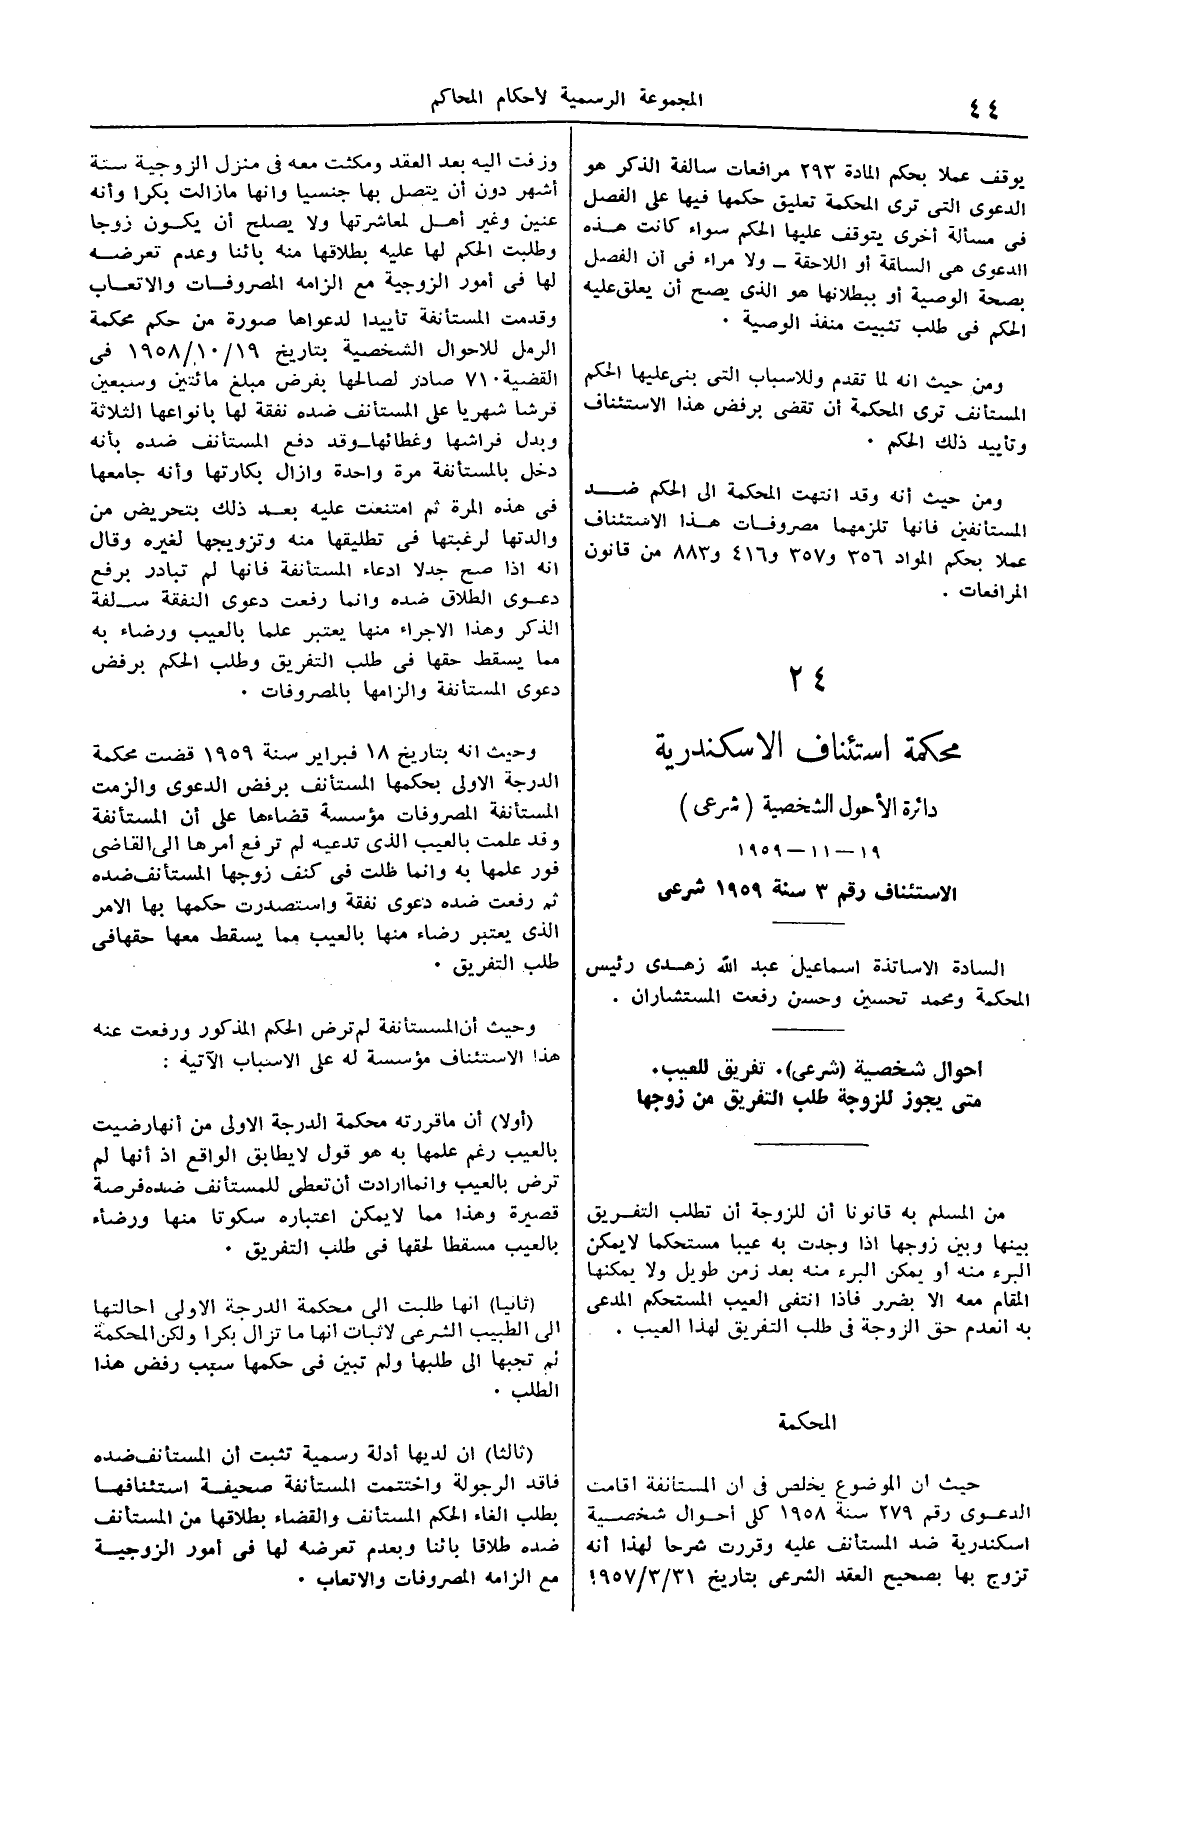 ٤٤
المجموعة الرسمية لأحكام المحاكم
يوقف عملا بحكم المادة ٢٩٣ مرافعات سالفة الذكر هو
الدعوى التى ترى المحكمة تعليق حكمها فيها على الفصل
فى مسألة أخرى يتوقف عليها الحكم سواء كانت هذه
الدعوى هى الساقة أو اللاحقة ــ ولا مراء فى أن الفصل
بصحة الوصية أو ببطلانها هو الذى يصح أن يعلق عليه
الحكم فى طلب تثبيت منفذ الوصية .
ومن حيث انه لما تقدم وللاسباب التى بنى عليها الحكم
المستأنف ترى المحكمة أن تقضى برفض هذا الاستئناف
وتأييد ذلك الحكم .
ومن حيث أنه وقد انتهت المحكمة الى الحكم ضد
المستأنفين فانها تلزمهما مصروفات هذا الاستئناف
عملا بحكم المواد ٣٥٦ و٣٥٧ و٤١٦ و٨٨٣ من قانون
المرافعات .
٢٤
محكمة استئناف الاسكندرية
دائرة الأحول الشخصية ( شرعى )
١٩ — ١١ — ١٩٥٩
الاستئناف رقم ٣ سنة ١٩٥٩ شرعى
السادة الاساتذة اسماعيل عبد الله زهدى رئيس
المحكمة ومحمد تحسين وحسن رفعت المستشاران .
احوال شخصية (شرعى). تفريق للعيب.
متى يجوز للزوجة طلب التفريق من زوجها
من المسلم به قانونا أن للزوجة أن تطلب التفريق
بينها وبين زوجها اذا وجدت به عيبا مستحكما لايمكن
البرء منه أو يمكن البرء منه بعد زمن طويل ولا يمكنها
المقام معه الا بضرر فاذا انتفى العيب المستحكم المدعى
به انعدم حق الزوجة فى طلب التفريق لهذا العيب .
المحكمة
حيث ان الموضوع يخلص فى ان المستأنفة اقامت
الدعوى رقم ٢٧٩ سنة ١٩٥٨ كلى أحوال شخصية
اسكندرية ضد المستأنف عليه وقررت شرحا لهذا أنه
تزوج بها بصحيح العقد الشرعى بتاريخ ١٩٥٧/٣/٣١
وزفت اليه بعد العقد ومكثت معه فى منزل الزوجية ستة
أشهر دون أن يتصل بها جنسيا وانها مازالت بكرا وأنه
عنين وغير أهل لمعاشرتها ولا يصلح أن يكون زوجا
وطلبت الحكم لها عليه بطلاقها منه بائنا وعدم تعرضه
لها فى أمور الزوجية مع الزامه المصروفات والاتعاب
وقدمت المستأنفة تأييدا لدعواها صورة من حكم محكمة
الرمل للاحوال الشخصية بتاريخ ١٩٥٨/١٠/١٩ فى
القضية ٧١٠ صادر لصالحها بفرض مبلغ مائتين وسبعين
قرشا شهريا على المستأنف ضده نفقة لها بانواعها الثلاثة
وبدل فراشها وغطائها ــ وقد دفع المستأنف ضده بأنه
دخل بالمستأنفة مرة واحدة وازال بكارتها وأنه جامعها
فى هذه المرة ثم امتنعت عليه بعد ذلك بتحريض من
والدتها لرغبتها فى تطليقها منه وتزويجها لغيره وقال
انه اذا صح جدلا ادعاء المستأنفة فانها لم تبادر برفع
دعوى الطلاق ضده وانما رفعت دعوى النفقة سالفة
الذكر وهذا الاجراء منها يعتبر علما بالعيب ورضاء به
مما يسقط حقها فى طلب التفريق وطلب الحكم برفض
دعوى المستأنفة والزامها بالمصروفات .
وحيث انه بتاريخ ١٨ فبراير سنة ١٩٥٩ قضت محكمة
الدرجة الاولى بحكمها المستأنف برفض الدعوى والزمت
المستأنفة المصروفات مؤسسة قضاءها على أن المستأنفة
وقد علمت بالعيب الذى تدعيه لم ترفع أمرها الى القاضى
فور علمها به وانما ظلت فى كنف زوجها المستأنف ضده
ثم رفعت ضده دعوى نفقة واستصدرت حكمها بها الامر
الذى يعتبر رضاء منها بالعيب مما يسقط معها حقها فى
طلب التفريق .
وحيث أن المستأنفة لم ترض الحكم المذكور ورفعت عنه
هذا الاستئناف مؤسسة له على الاسباب الآتية :
(أولا) أن ماقررته محكمة الدرجة الاولى من أنها رضيت
بالعيب رغم علمها به هو قول لايطابق الواقع اذ أنها لم
ترض بالعيب وانما ارادت أن تعطى للمستأنف ضده فرصة
قصيرة وهذا مما لايمكن اعتباره سكوتا منها ورضاء
بالعيب مسقطا لحقها فى طلب التفريق .
(ثانيا) انها طلبت الى محكمة الدرجة الاولى احالتها
الى الطبيب الشرعى لاثبات انها ما تزال بكرا ولكن المحكمة
لم تجبها الى طلبها ولم تبين فى حكمها سبب رفض هذا
الطلب .
(ثالثا) ان لديها أدلة رسمية تثبت أن المستأنف ضده
فاقد الرجولة واختتمت المستأنفة صحيفة استئنافها
بطلب الغاء الحكم المستأنف والقضاء بطلاقها من المستأنف
ضده طلاقا بائنا وبعدم تعرضه لها فى أمور الزوجية
مع الزامه المصروفات والاتعاب .